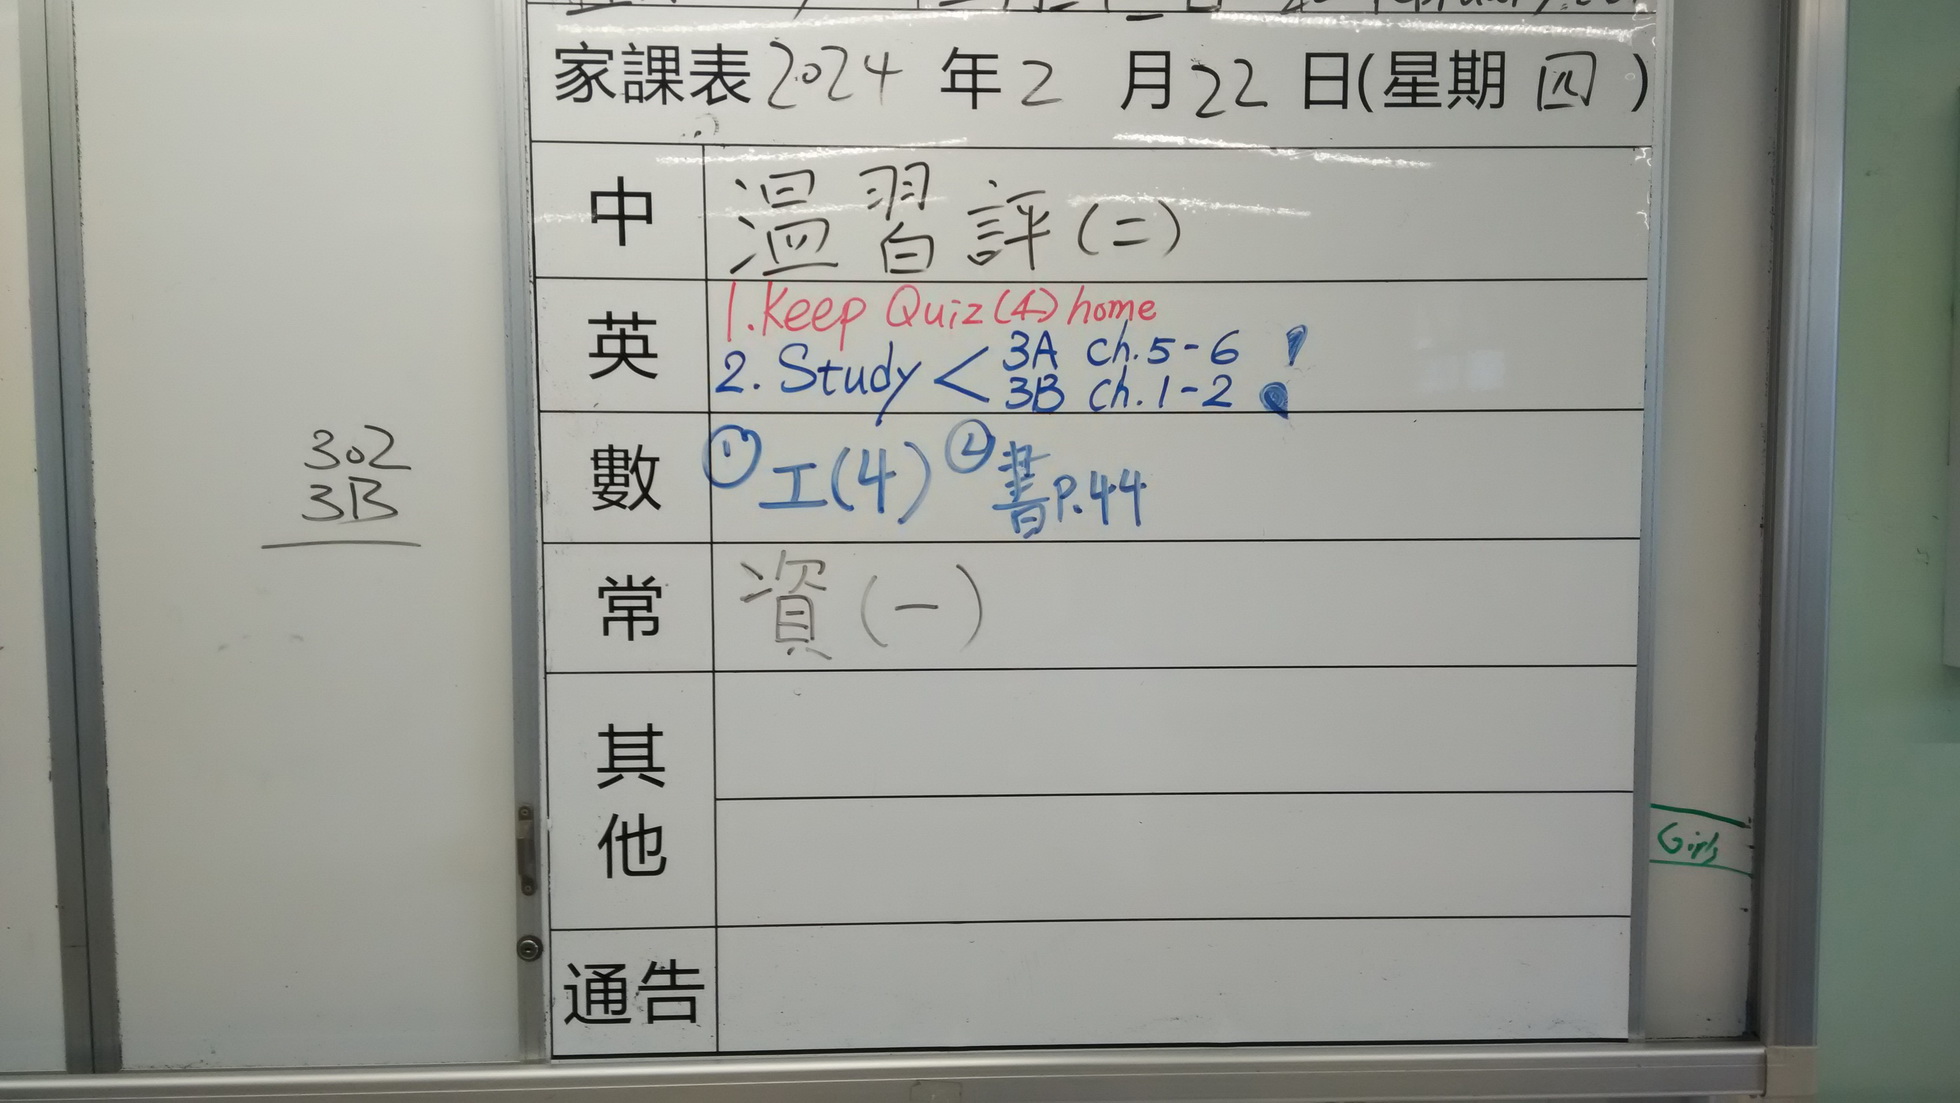 家課表 2024 年 2 月 22 日(星期 四 )
中 溫習評(二)
英 1. Keep Quiz (4) home
2. Study < 3A ch.5-6
3B ch.1-2 !
數 ① 工(4) ② 書P.44
常 資(一)
其他
通告
302
3B
Girls